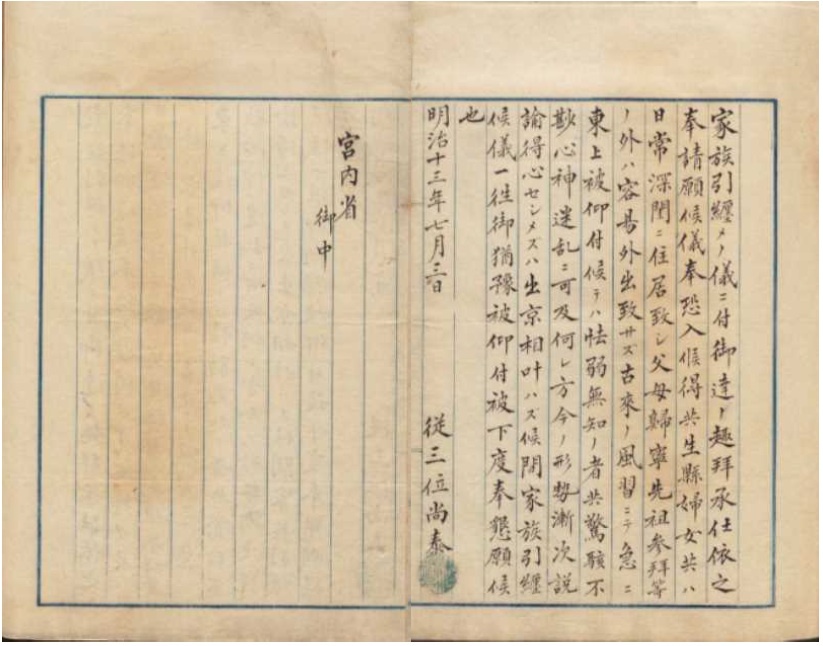 家族引纒メノ儀ニ付御達ノ趣拜承仕依之
奉請願候儀奉恐入候得共生縣婦女共ハ
日常深閨ニ住居致シ父母歸寧先祖參拜等
ノ外ハ容易外出致サズ古來ノ風習ニテ急ニ
東上被仰付候テハ怯弱無知ノ者共驚駭不
尠心神迷乱ニ可及何レ方今ノ形勢漸次説
諭得心セシメズハ出京相叶ハズ候間家族引纒
候儀一徃御猶豫被仰付被下度奉懇願候
也
明治十三年七月三日
從三位尚泰
宮内省
御中